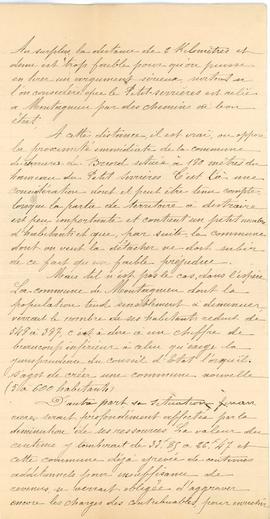 Au surplus, la distance de 2 Kilomètres et
demi est trop faible pour qu'on puisse
en tirer un argument sérieux, surtout si
l'on considère que le Petit-Serrières est relié
à Montagnieu par des chemins en bon
état.
A cette distance, il est vrai, on oppose
la proximité immédiate de la commune
de Briord, située à 180 mètres du
hameau du Petit Serrières. C'est là une
considération dont il peut être tenu compte
lorsque la partie de territoire à distraire
est peu importante et contient un petit nombre
d'habitants et que, par suite, la commune
dont on veut la détacher ne doit subir
de ce fait qu'un faible préjudice.
Mais tel n'est pas le cas, dans l'espèce.
La commune de Montagnieu dont la
population tend sensiblement à diminuer,
verrait le nombre de ses habitants réduit de
549 à 397, c'est à dire à un chiffre de
beaucoup inférieur à celui qu'exige la
jurisprudence du Conseil d'Etat lorsqu'il
s'agit de créer une commune nouvelle
(500 à 600 habitants)
D'autre part sa situation finan
cière serait profondément affectée par la
diminution de ses ressources. La valeur du
centime y tomberait de 35,85 à 26,47 et
cette commune déjà grevée de centimes
additionnels pour insuffisance de
revenus, se verrait obligée d'aggraver
encore les charges des contribuables, pour